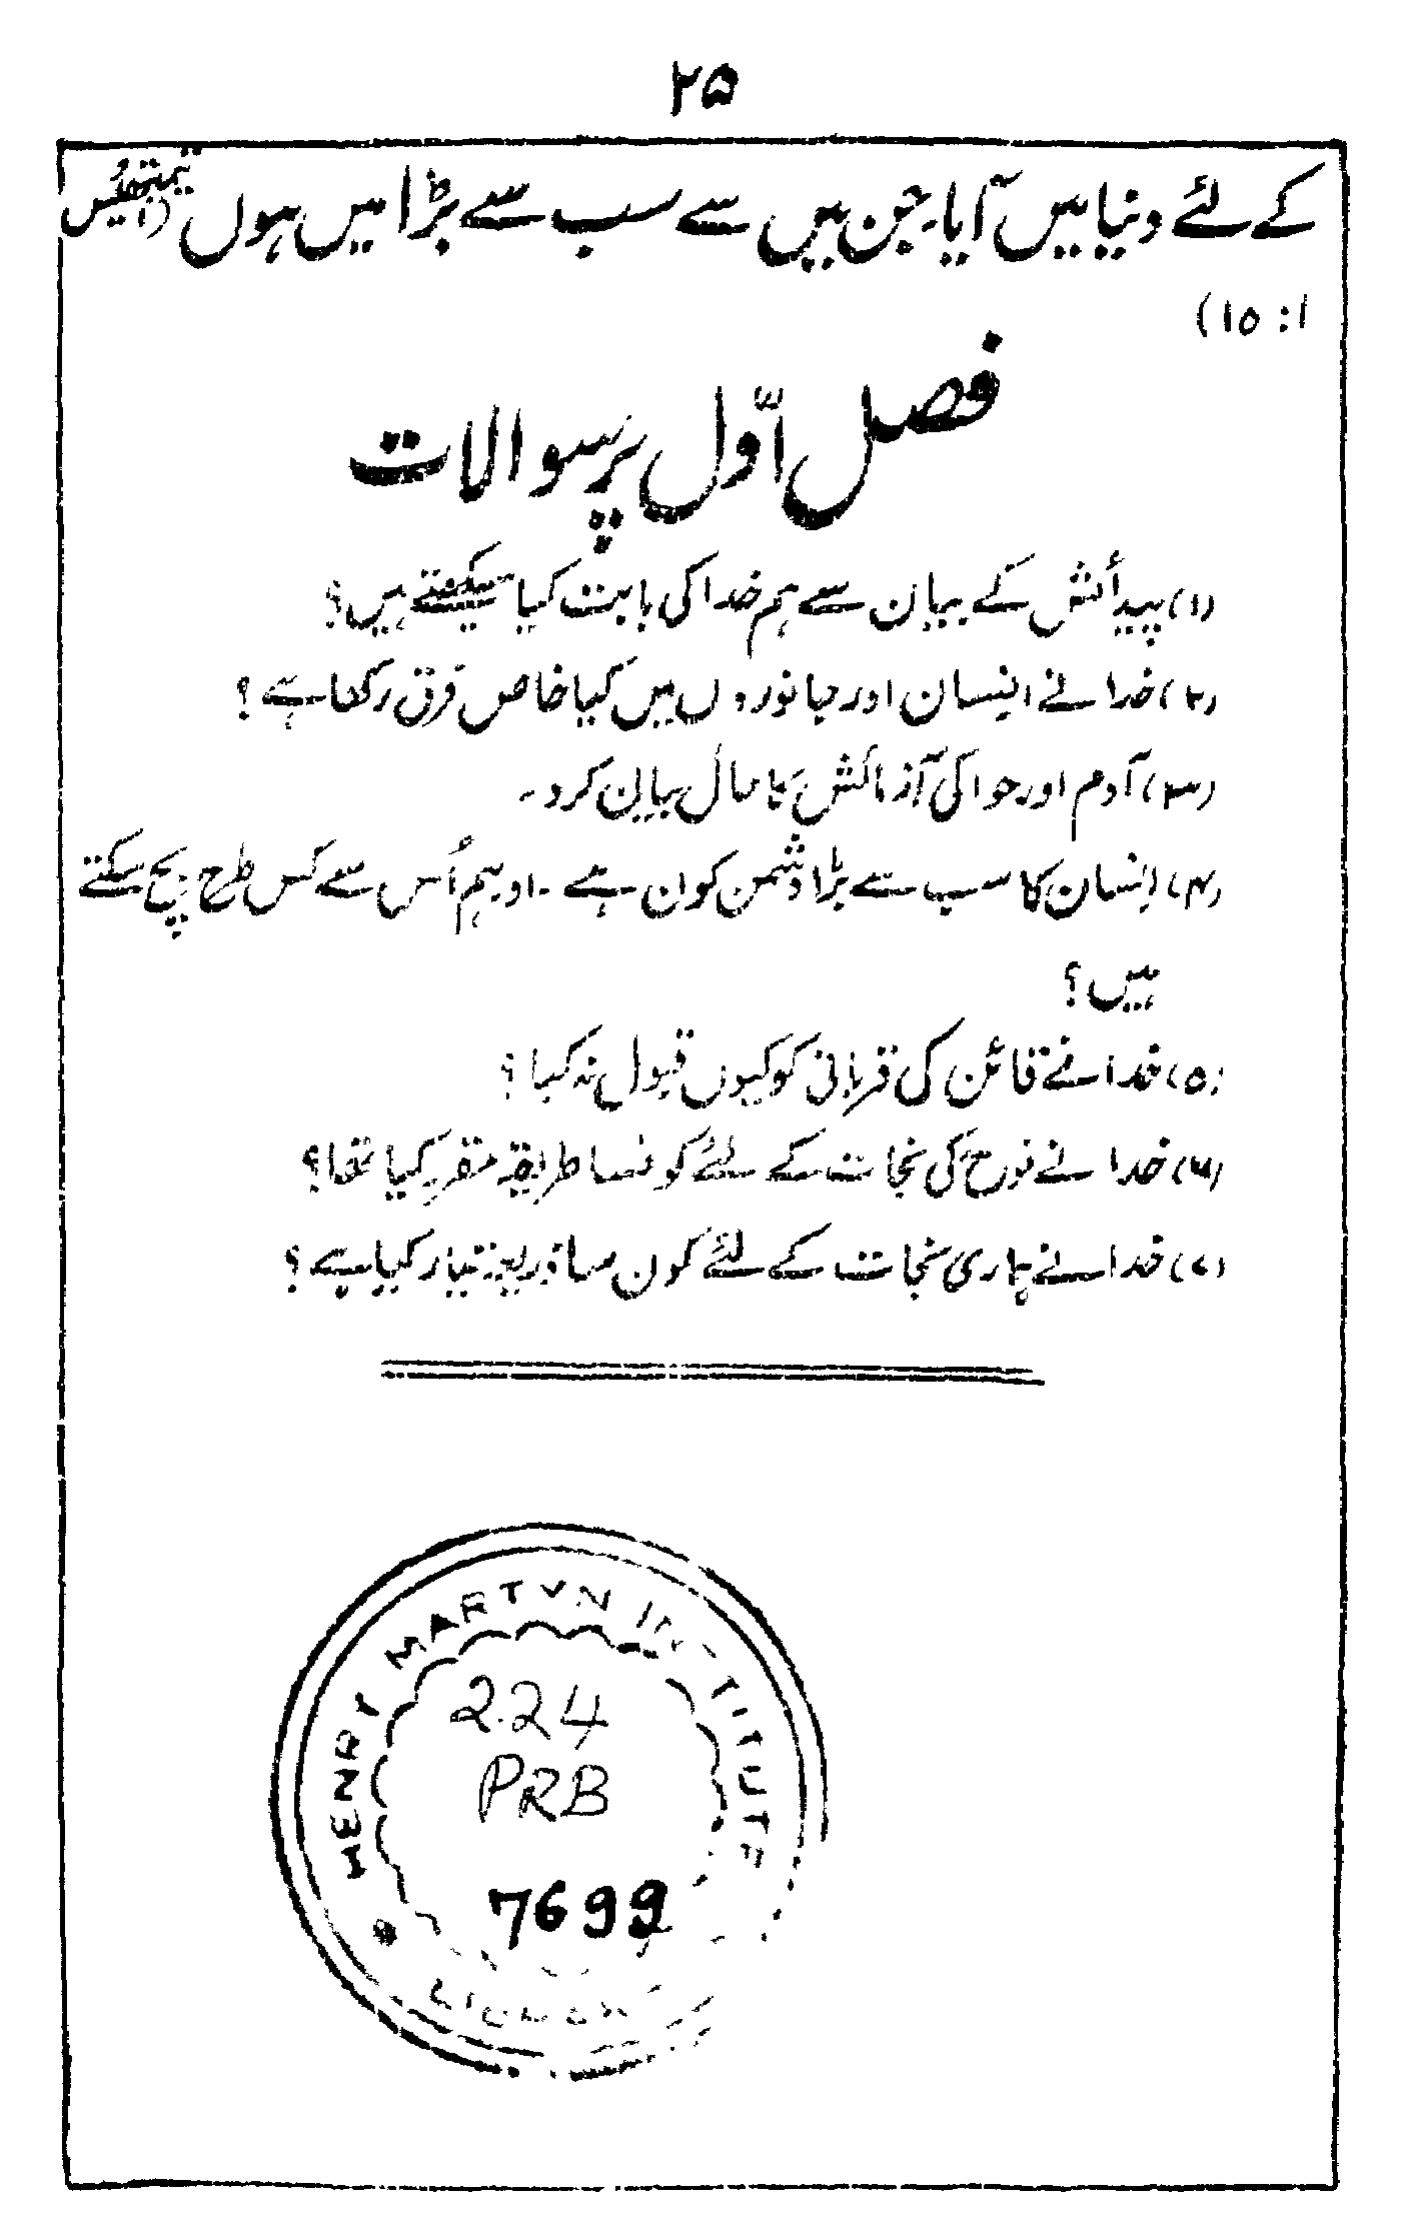 ۲۵
کے لئے دنیا میں آیا۔ جن میں سے سب سے بڑا میں ہوں (۱۔تیمتھیُس
۱: ۱۵)
فصل اوّل پر سوالات
(۱) پیدأئش کے بیان سے ہم خدا کی بابت کیا سیکھتے ہیں؟
(۲) خدا نے انسان اور جانوروں میں کیا خاص فرق رکھا ہے؟
(۳) آدم اور حوا کی آزمائش کا حال بیان کرو۔
(۴) انسان کا سب سے بڑا دشمن کون ہے۔ اور ہم اُس سے کس طرح بچ سکتے
ہیں؟
(۵) خدا نے قائن کی قربانی کو کیوں قبول نہ کیا؟
(۶) خدا نے نوح کی نجات کے لئے کونسا طریقہ مقرر کیا تھا؟
(۷) خدا نے ہماری نجات کے لئے کون سا ذریعہ تیار کیا ہے؟
HENRY MARTYN INSTITUTE
2.24
PRB
7699